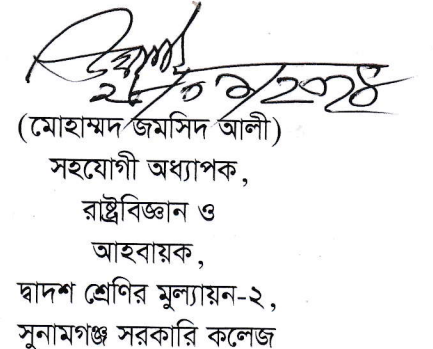 (মোহাম্মদ জমসিদ আলী)
সহযোগী অধ্যাপক,
রাষ্ট্রবিজ্ঞান ও
আহবায়ক,
দ্বাদশ শ্রেণির মুল্যায়ন-২,
সুনামগঞ্জ সরকারি কলেজ